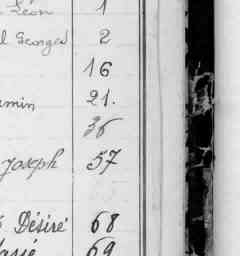 Léon 1
l Georges 2
16
amin 21.
36
Joseph 57
Désiré 68
69